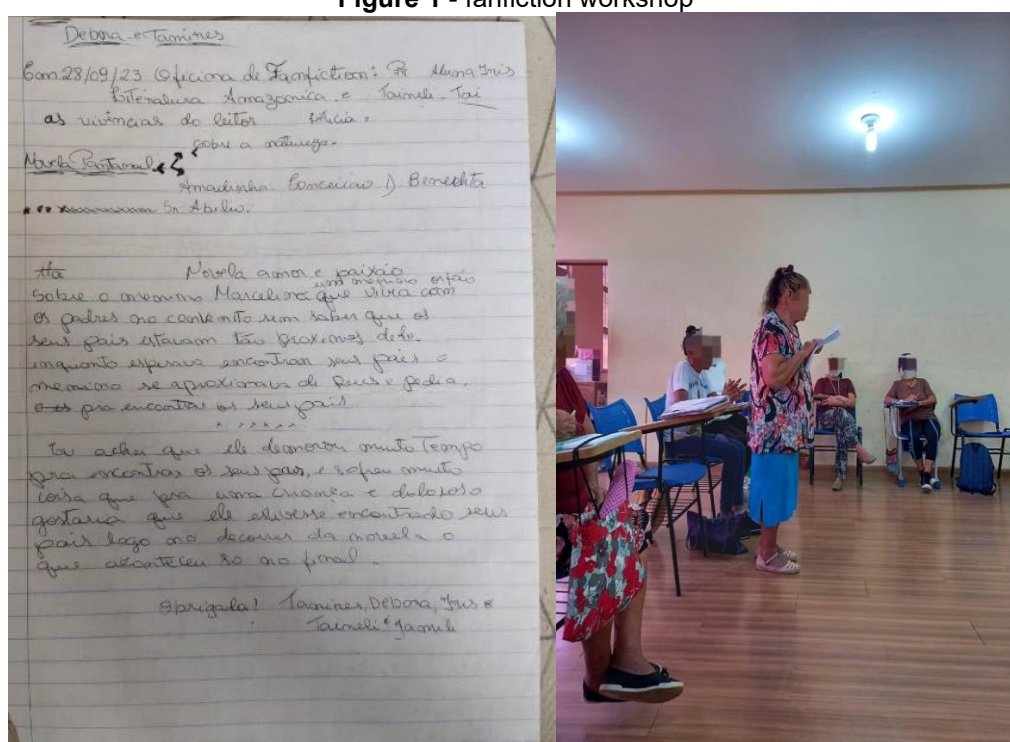 Figure 1 - fanfiction workshop
Debora e Tamires
28/09/23 Oficina de Fanfiction: Aluna Iris
Literatura Amazonica e Taineli Tai
as vivincias do leitor
sobre a natureza.
Maria Pantanal
Amadinha Conceicao D Benedita
Sr Abilio.
Novela amor e paixão
uma menino orfão
sobre o menino Marcelino que vivia com
os padres no convento sem saber que os
seus pais estavam tão proximos dele.
inquanto esperava encontrar seus pais o
menino se aproximava de Deus e pedia.
pra encontrar os seus pais
Eu achei que ele demorou muito tempo
pra encontrar os seus pais, e sofreu muito
coisa que pra uma criança e doloroso
gostaria que ele estivesse encontrado seus
pais logo no decorrer da novela o
que aconteceu so no final.
Obrigada! Tamires, Debora, Iris e
Taineli Jamili